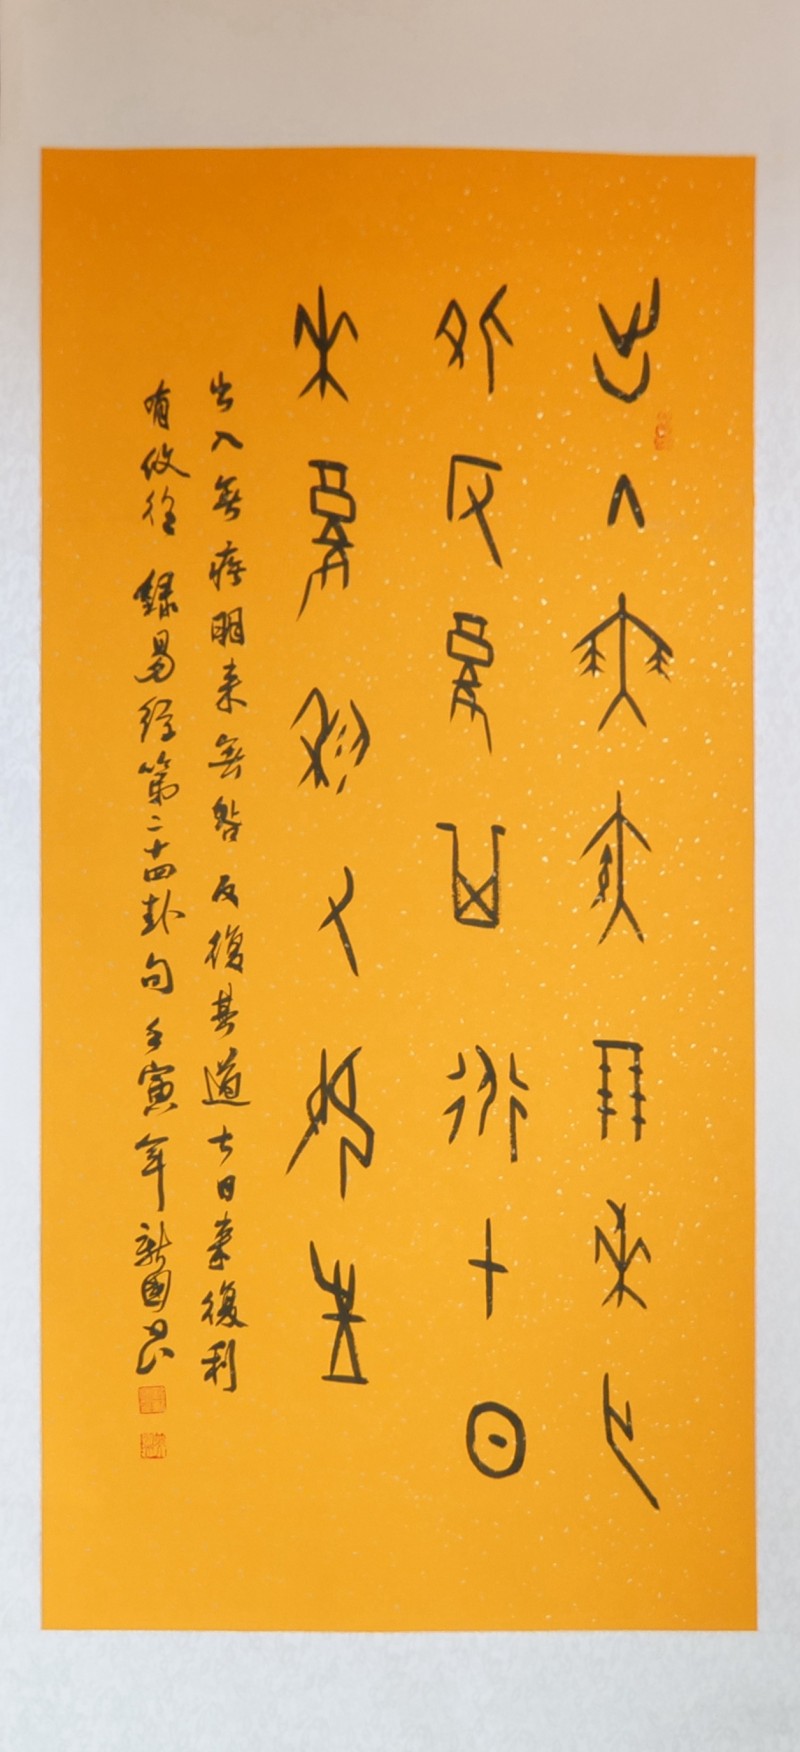 出入無疾朋來亡
咎反復其道七日
來復利又攸往
出入無疾朋来無咎反復其道七日来復利
有攸往 錄易經第二十四卦句 壬寅年 新國